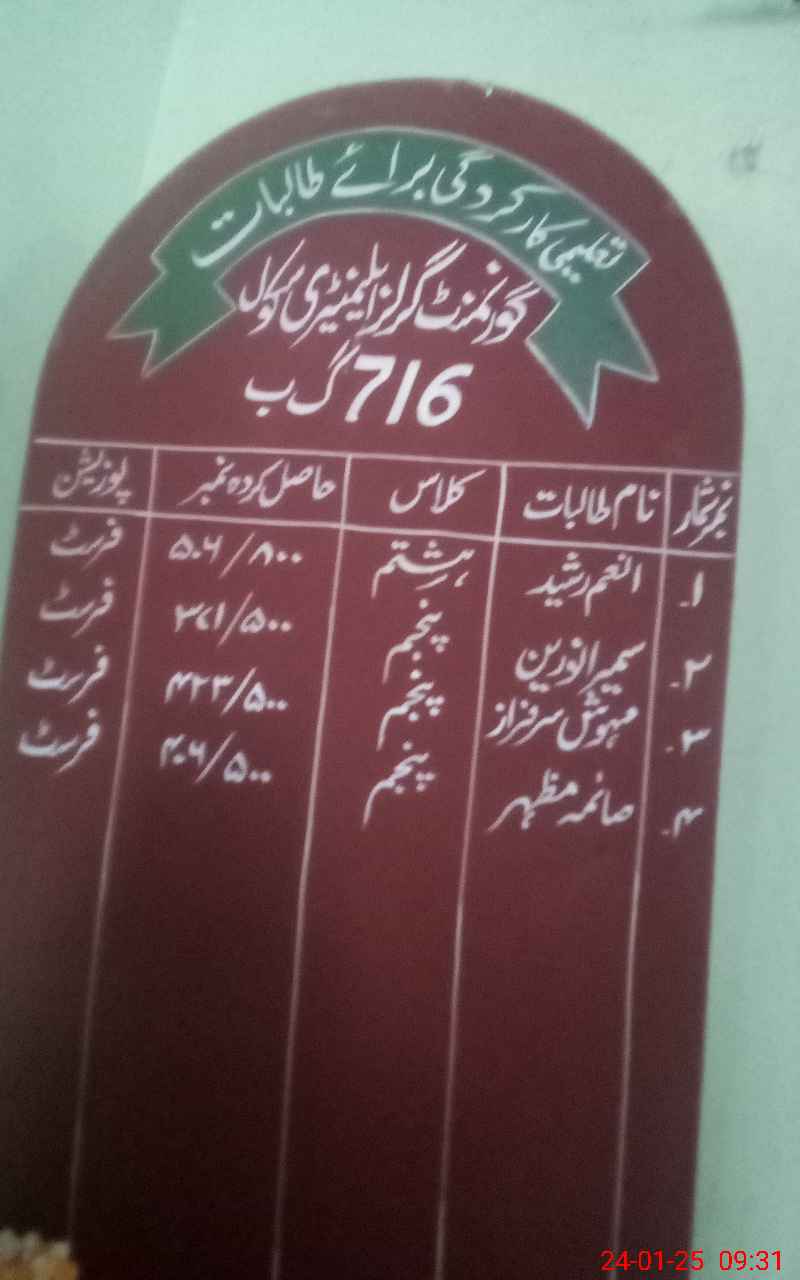 تعلیمی کارکردگی برائے طالبات
گورنمنٹ گرلز ایلیمنٹری سکول
716 گ ب
نمبر شمار نام طالبات کلاس حاصل کردہ نمبر پوزیشن
۱۔ انعم رشید ہشتم ۵۰۶/۸۰۰ فرسٹ
۲۔ سمیرا نورین پنجم ۳۷۱/۵۰۰ فرسٹ
۳۔ مہوش سرفراز پنجم ۴۲۳/۵۰۰ فرسٹ
۴۔ صائمہ مظہر پنجم ۴۰۶/۵۰۰ فرسٹ
24-01-25 09:31